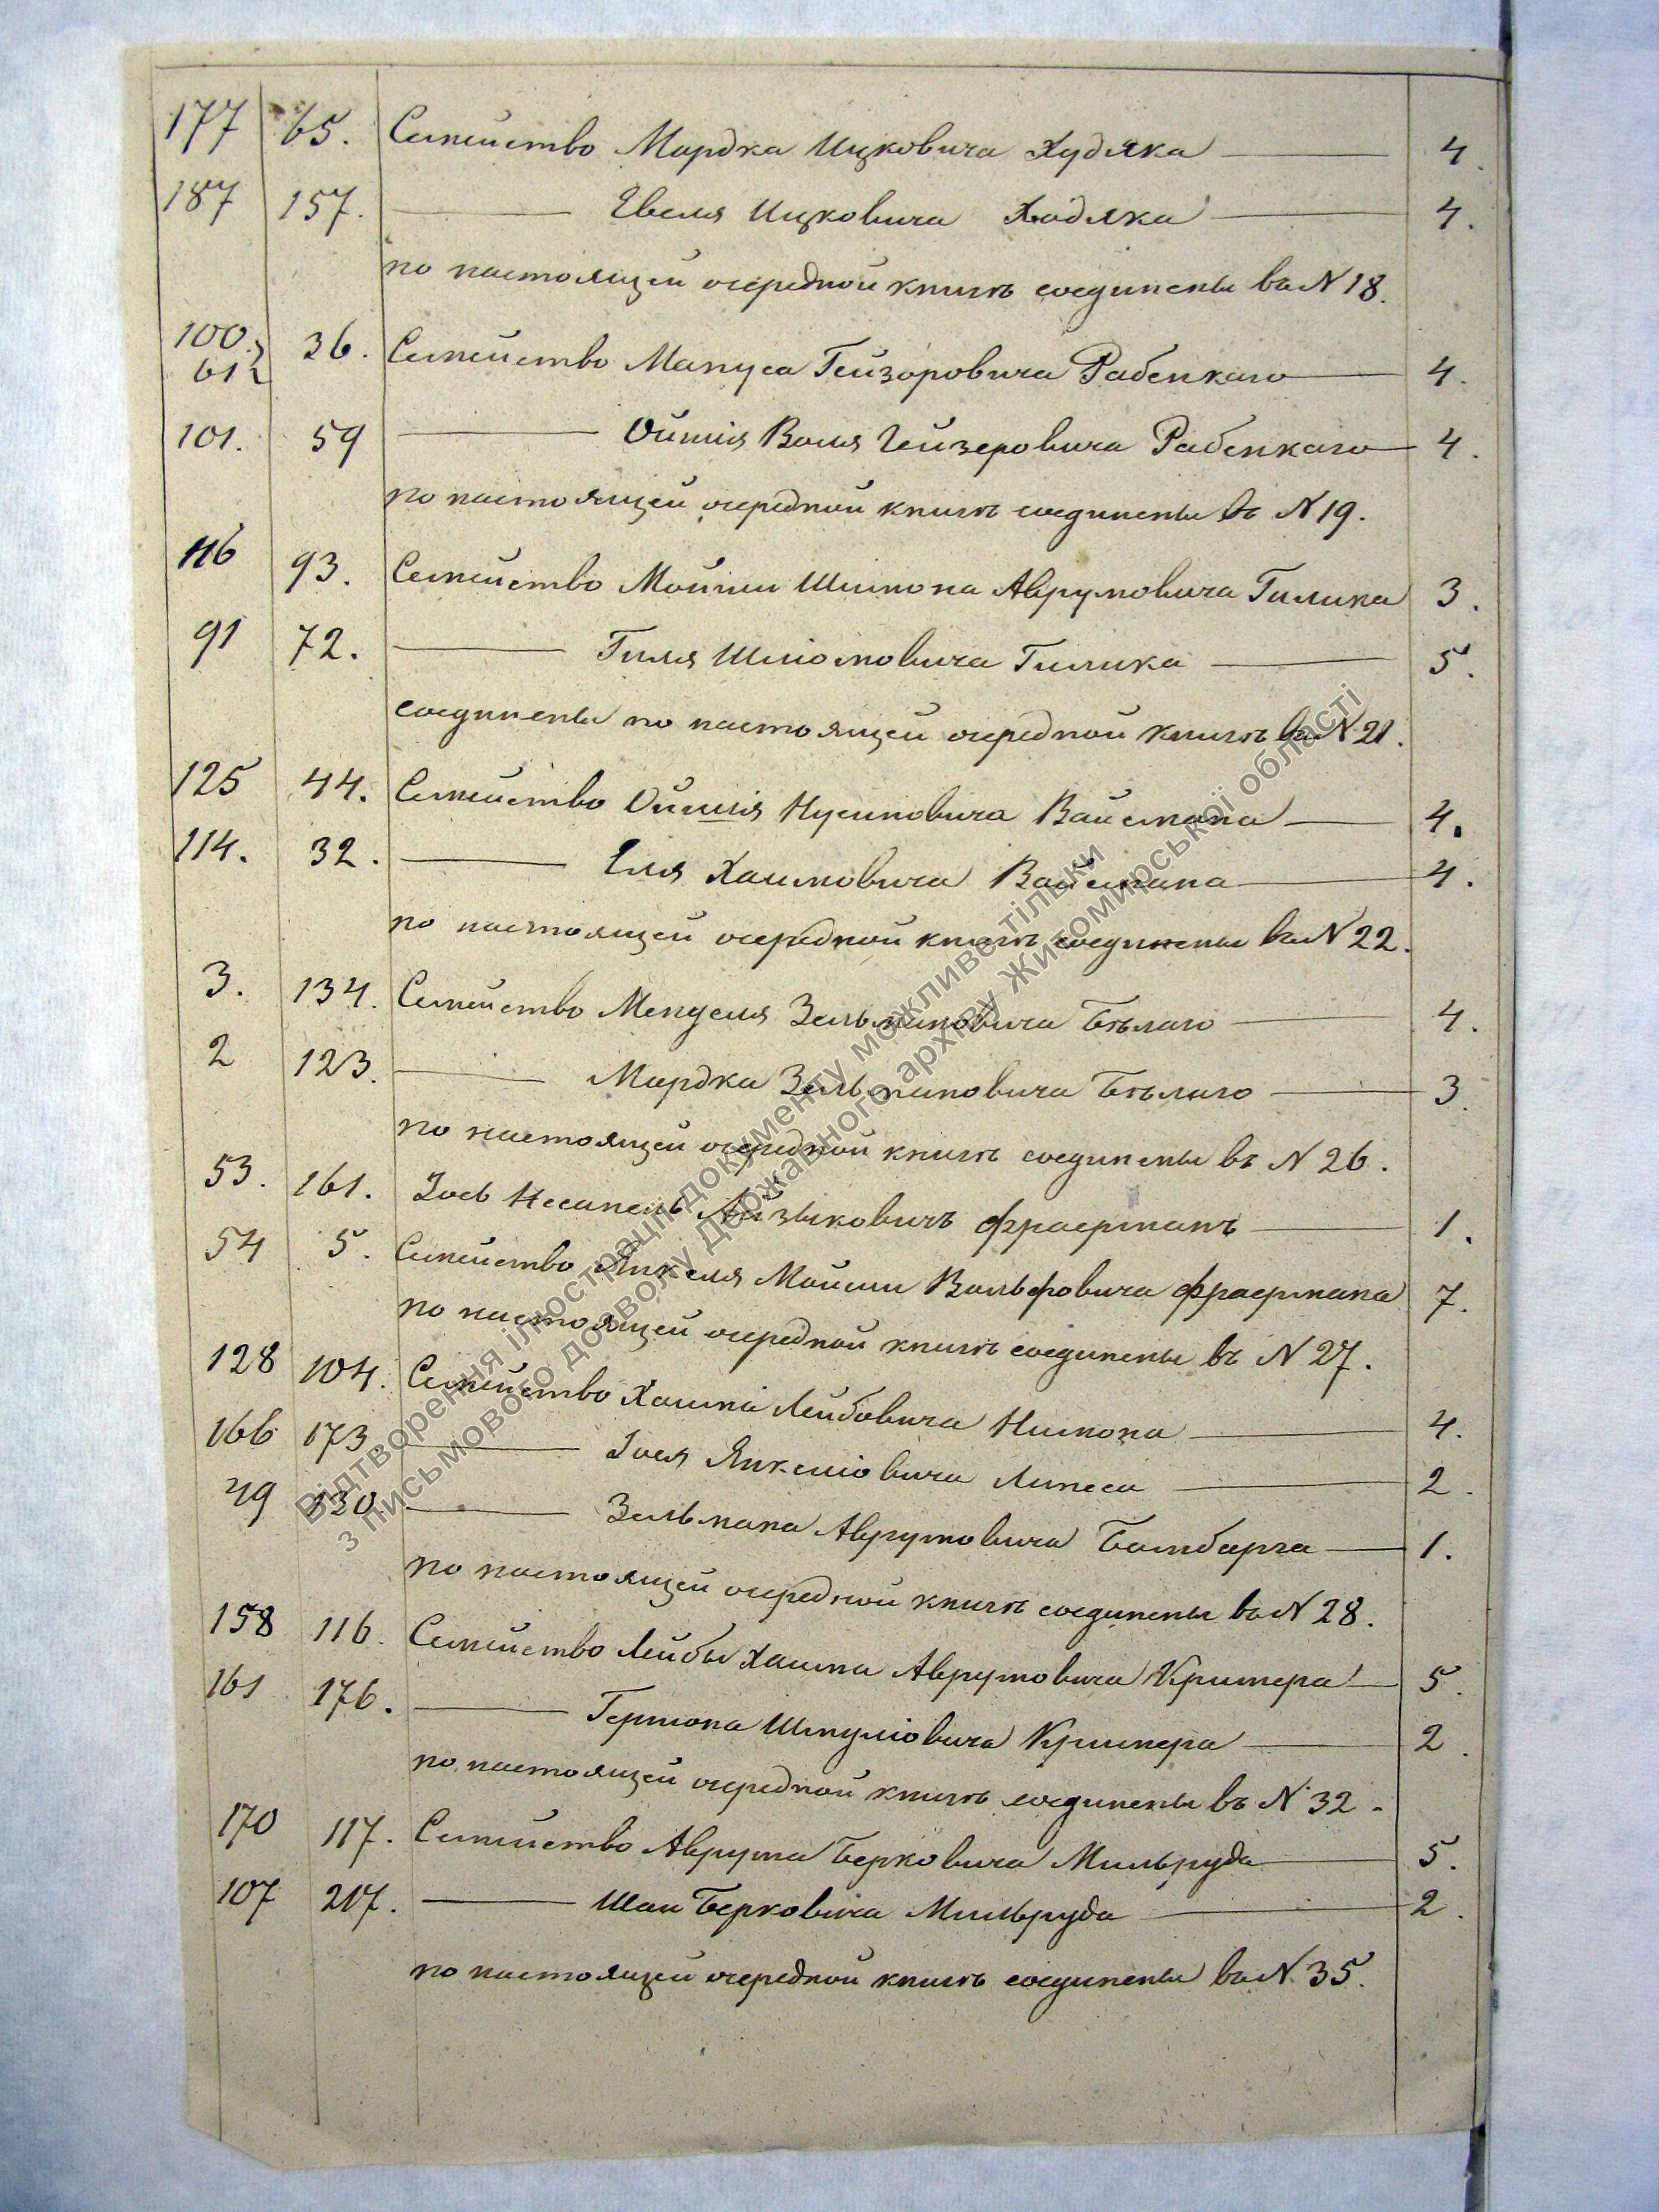 177 65. Семейство Мордка Ицковича Худяка 4.
187 157. Евеля Ицковича Ходяка 4.
по настоящей очередной книгѣ соединены въ N 18.
100. 61 36. Семейство Мануса Гейзоровича Рабенкаго 4.
101. 59 Ойшія Воля Гейзеровича Рабенкаго 4.
по настоящей очередной книгѣ соединены въ N 19.
116 93. Семейство Мошки Шимона Аврумовича Гилика 3.
91 72. Гиля Шліомовича Гилика 5.
соединены по настоящей очередной книгѣ въ N 21.
125 44. Семейство Ойшія Нусиновича Вайсмана 4.
114. 32. Еля Хаимовича Вайсмана 4.
по настоящей очередной книгѣ соединены въ N 22.
3. 134. Семейство Менделя Зельмановича Бѣлаго 4.
2 123. Мордка Зельмановича Бѣлаго 3.
по настоящей очередной книгѣ соединены въ N 26.
53. 161. Іось Несанель Айзыковичъ Фраерманъ 1.
54 5. Семейство Янкеля Мошки Вольфовича Фраермана 7.
по настоящей очередной книгѣ соединены въ N 27.
128 104. Семейство Хаима Лейбовича 4.
166 173 Іося Янкеліовича Липеса 2.
49 130 Зельмана Аврумовича Бамбарга 1.
по настоящей очередной книгѣ соединены въ N 28.
158 116. Семейство Лейбы Хаима Аврумовича Кримера 5.
161 176. Гершона Шмуліовича Кримера 2.
по настоящей очередной книгѣ соединены въ N 32.
170 117. Семейство Аврума Берковича Мильруда 5.
107 217. Шаи Берковича Мильруда 2.
по настоящей очередной книгѣ соединены въ N 35.
Відтворення ілюстрації документу можливе тільки
з письмового дозволу Державного архіву Житомирської області